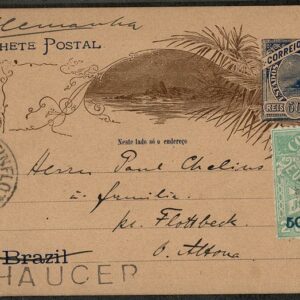 Allemanha
HETE POSTAL
CORREIO
REIS
Neste lado só o endereço
50
Herrn Paul Chelius
& familia
pr. Flottbeck
b. Altona
Brazil
HAUCER